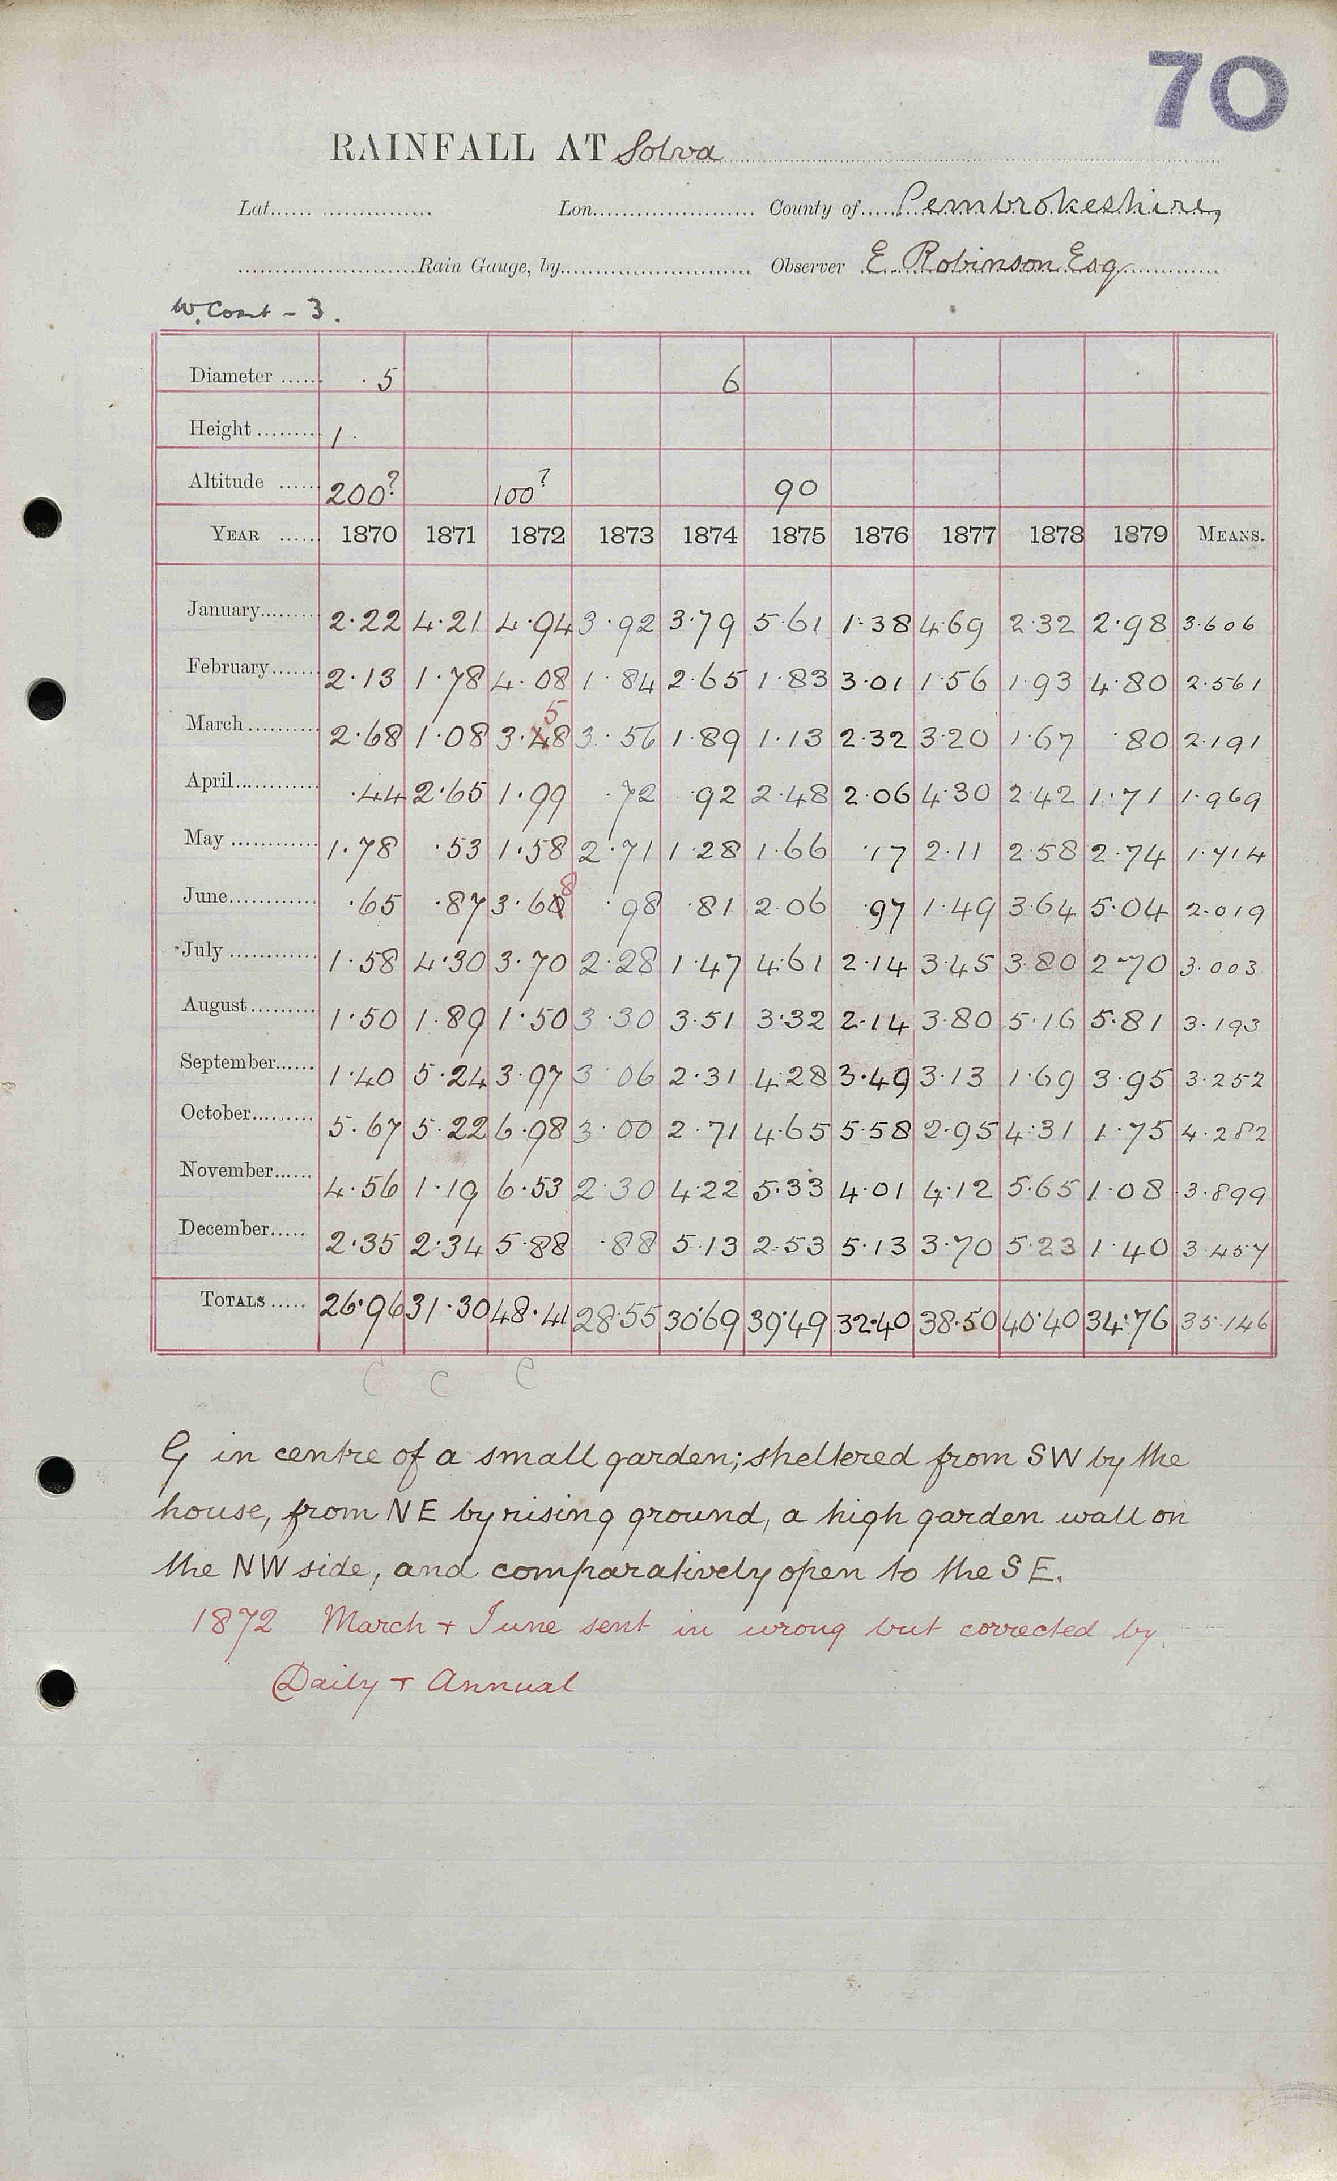 70
RAINFALL AT Solva
Lat. Lon. County of Pembrokeshire,
Rain Gauge, by Observer E. Robinson Esq
W. Coast - 3.
Diameter 5 6
Height 1.
Altitude 200? 100? 90
YEAR 1870 1871 1872 1873 1874 1875 1876 1877 1878 1879 MEANS.
January 2.22 4.21 4.94 3.92 3.79 5.61 1.38 4.69 2.32 2.98 3.606
February 2.13 1.78 4.08 1.84 2.65 1.83 3.01 1.56 1.93 4.80 2.561
March 2.68 1.08 3.58 3.56 1.89 1.13 2.32 3.20 1.67 .80 2.191
April .44 2.65 1.99 .72 .92 2.48 2.06 4.30 2.42 1.71 1.969
May 1.78 .53 1.58 2.71 1.28 1.66 .17 2.11 2.58 2.74 1.714
June .65 .87 3.68 .98 .81 2.06 .97 1.49 3.64 5.04 2.019
July 1.58 4.30 3.70 2.28 1.47 4.61 2.14 3.45 3.80 2.70 3.003
August 1.50 1.89 1.50 3.30 3.51 3.32 2.14 3.80 5.16 5.81 3.193
September 1.40 5.24 3.97 3.06 2.31 4.28 3.49 3.13 1.69 3.95 3.252
October 5.67 5.22 6.98 3.00 2.71 4.65 5.58 2.95 4.31 1.75 4.282
November 4.56 1.19 6.53 2.30 4.22 5.33 4.01 4.12 5.65 1.08 3.899
December 2.35 2.34 5.88 .88 5.13 2.53 5.13 3.70 5.23 1.40 3.457
TOTALS 26.96 31.30 48.41 28.55 30.69 39.49 32.40 38.50 40.40 34.76 35.146
C C C
G in centre of a small garden; sheltered from SW by the
house, from NE by rising ground, a high garden wall on
the NW side, and comparatively open to the SE.
1872 March + June sent in wrong but corrected by
Daily + Annual